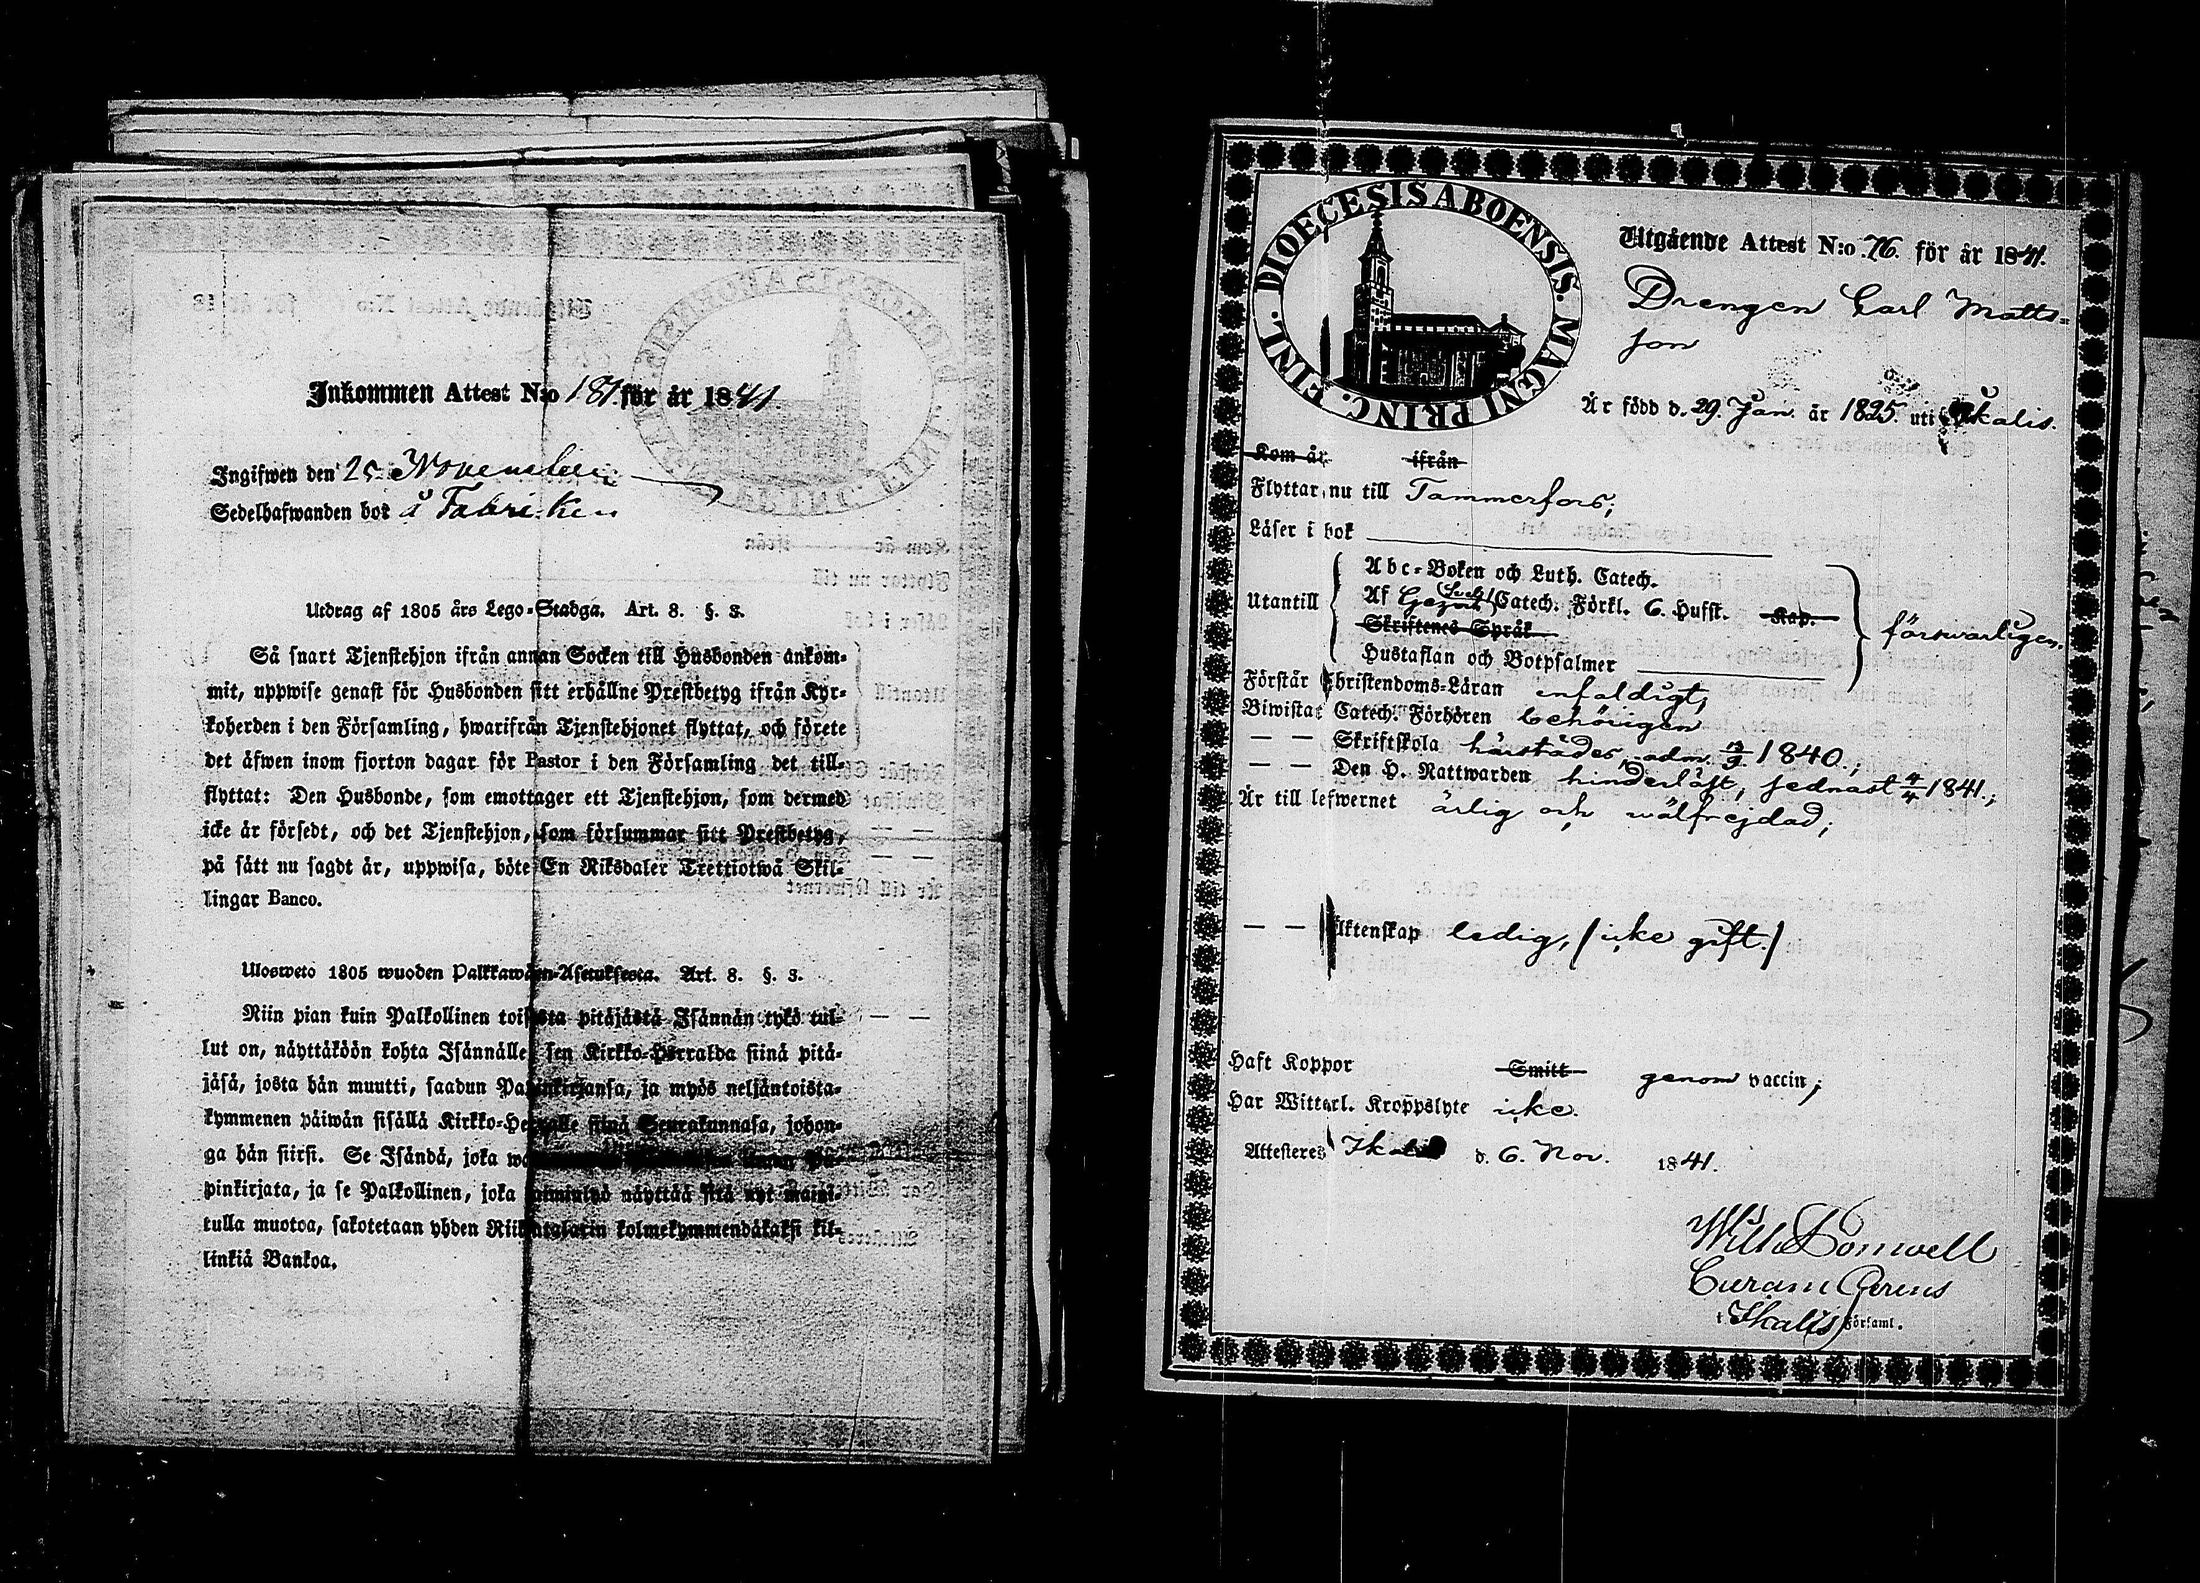 Inkommen Attest N:o 187 för år 1841.
Ingifwen den 25 November
Sedelhafwanden bor å Fabriken
Utdrag af 1805 års Lego-Stadga. Art. 8. §. 3.
Så snart Tjenstehjon ifrån annan Socken till Husbonden ankom-
mit, uppwise genast för Husbonden sitt erhållne Prestbetyg ifrån Kyr-
koherden i den Församling, hwarifrån Tjenstehjonet flyttat, och förete
det äfwen inom fjorton dagar för Pastor i den Församling det till-
flyttat: Den Husbonde, som emottager ett Tjenstehjon, som dermed
icke är försedt, och det Tjenstehjon, som försummar sitt Prestbetyg,
på sätt nu sagdt är, uppwisa, böte En Riksdaler Trettiotwå Skil-
lingar Banco.
Ulosweto 1805 wuoden Palkkawäen-Asetuksesta. Art. 8. §. 3.
Niin pian kuin Palkollinen toisesta pitäjästä Isännän tykö tul-
lut on, näyttäköön kohta Isännälle sen Kirkko-Herralda siinä pitä-
jäsä, josta hän muutti, saadun Papinkirjansa, ja myös neljäntoista-
kymmenen päiwän sisällä Kirkko-Herralle siinä Seurakunnasa, johon-
ga hän siirsi. Se Isändä, joka
pinkirjata, ja se Palkollinen, joka laiminlyö näyttää sitä nyt maini-
tulla muotoa, sakotetaan yhden Riikintalarin kolmekymmendäkaksi kil-
linkiä Bankoa.
DIOECESIS ABOENSIS. MAGNI PRINC. FINL.
Utgående Attest N:o 76. för år 1841.
Drengen Carl Matts-
son
Är född d. 29. Jan. år 1825. uti Ikalis.
Kom år ifrån
Flyttar nu till Tammerfors;
Läser i bok
Utantill
Abc-Boken och Luth. Catech.
Af Catech. Förkl. 6. Hufst. Kap.
Skriftenes Språk
Hustaflan och Botpsalmer
förswarligen.
Förstår Christendoms-Läran enfaldigt;
Biwistat Catech. Förhören behörigen
— — Skriftskola härstädes, adm. 1840.;
— — Den H. Nattwarden hinderlöst, sednast 4/4 1841.;
Är till lefwernet ärlig och wälfrejdad;
— — Äktenskap ledig, (icke gift.)
Haft Koppor Smitt genom vaccin;
Har Witterl. Kroppslyte icke.
Attesteres Ikalis d. 6. Nov. 1841.
Wilh.
Curam Gerens
i Ikalis Församl.